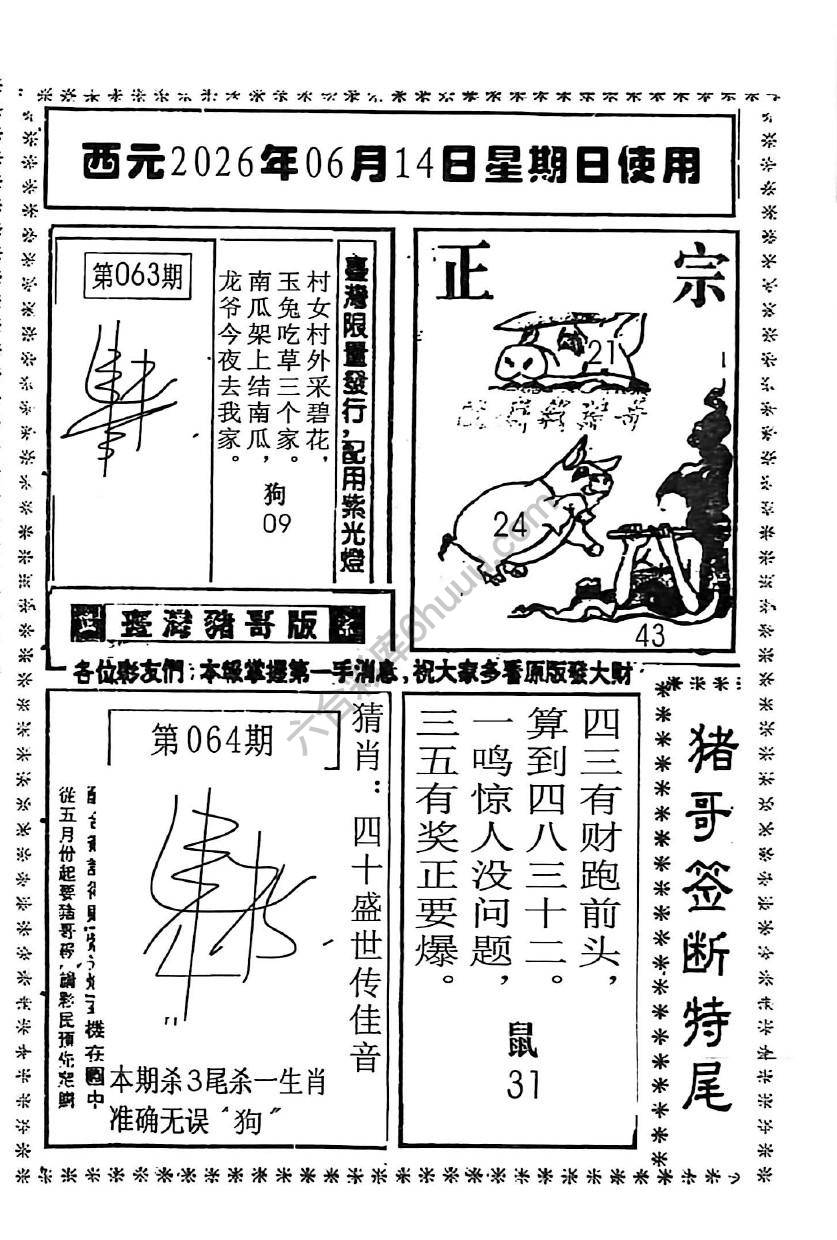 西元2026年06月14日星期日使用
第063期
臺灣限量發行，配用紫光燈
村女村外采碧花，
玉兔吃草三个家。
南瓜架上结南瓜，
龙爷今夜去我家。
狗
09
正宗
21
24
43
正 臺灣豬哥版 宗
各位彩友們：本報掌握第一手消息，祝大家多看原版發大財
第064期
猜肖：四十盛世传佳音
從五月份起要豬哥報，請彩民預
機在國中
本期杀3尾杀一生肖
准确无误“狗”
四三有财跑前头，
算到四八三十二。
一鸣惊人没问题，
三五有奖正要爆。
鼠
31
猪哥签断特尾
六合彩库6huuu.com